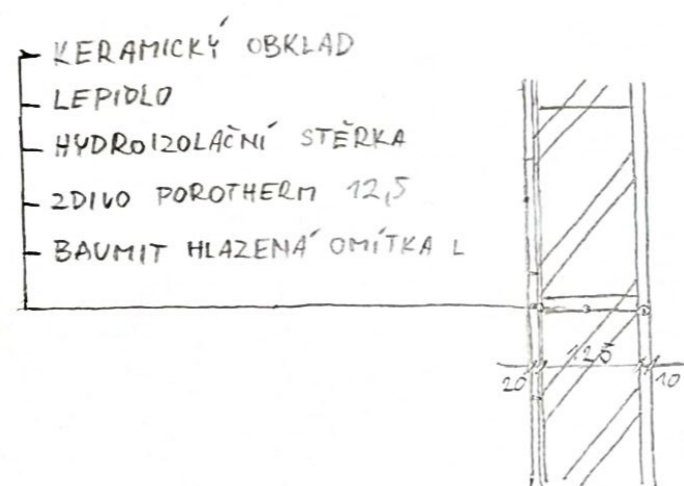 KERAMICKÝ OBKLAD
LEPIDLO
HYDROIZOLAČNÍ STĚRKA
ZDIVO POROTHERM 12,5
BAUMIT HLAZENÁ OMÍTKA L
20 125 10